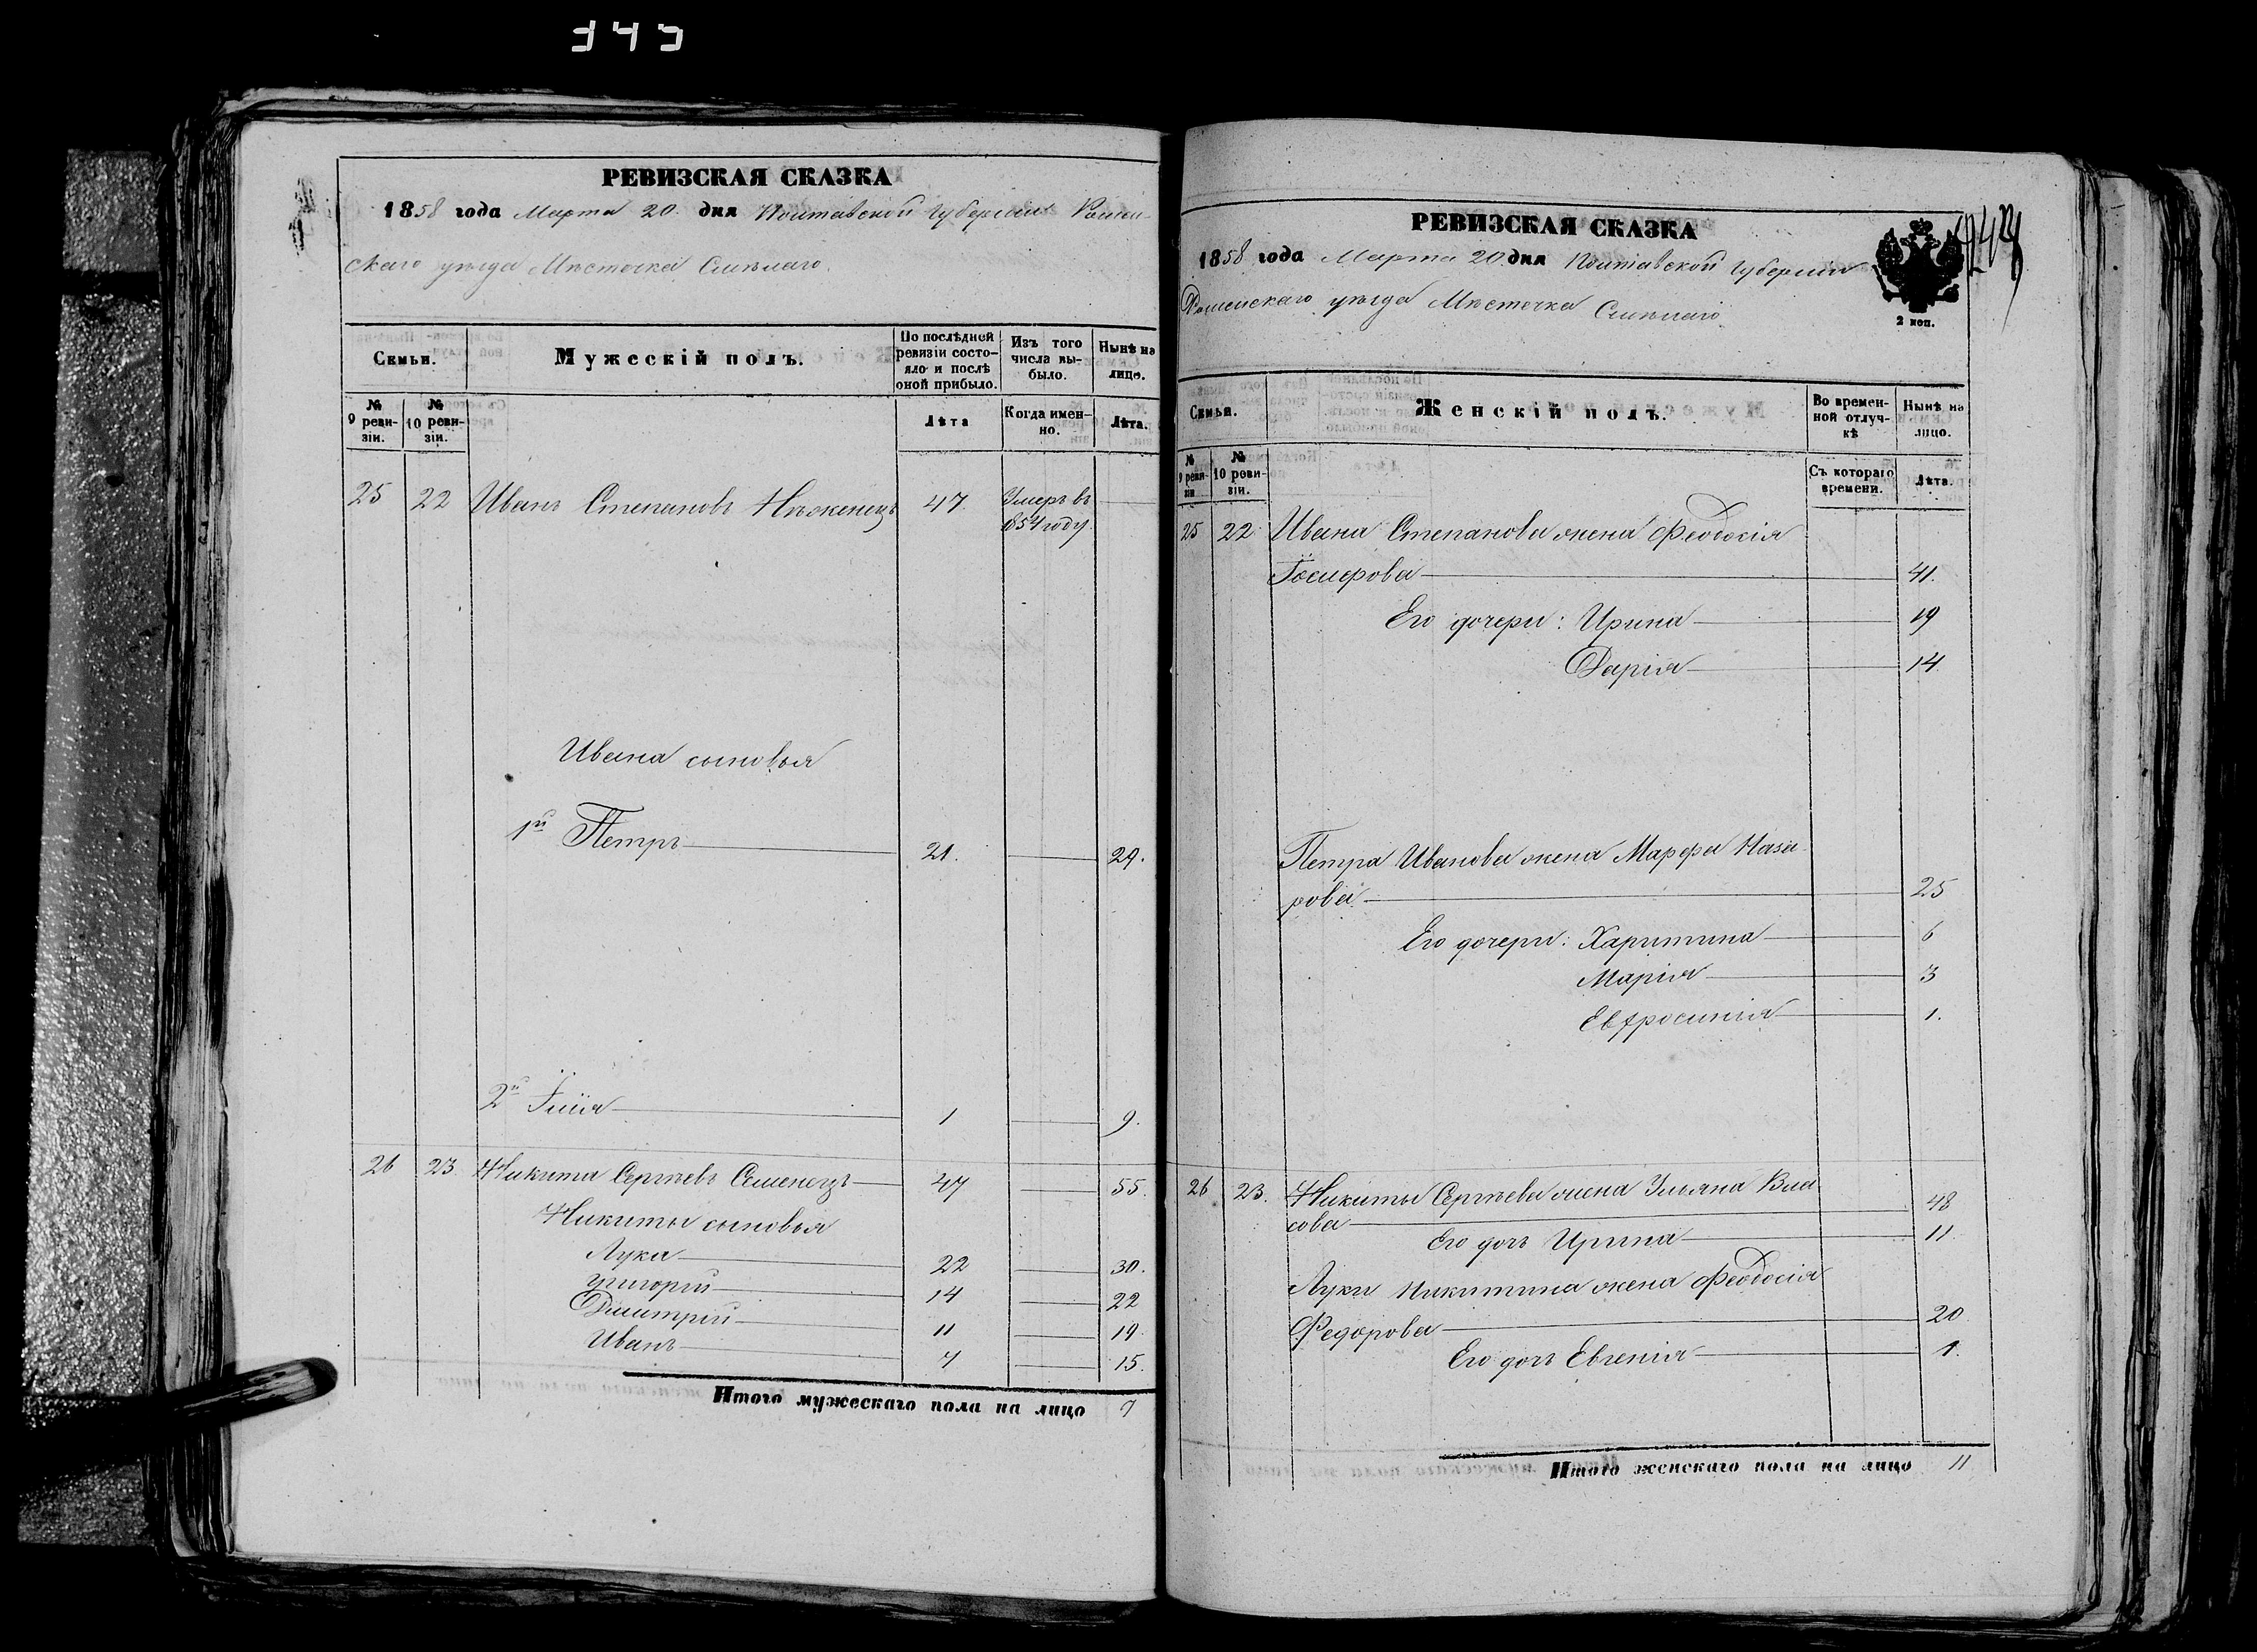 РЕВИЗСКАЯ СКАЗКА
1858 года Марта 20. дня Полтавской Губерніи Ромен-
скаго уѣзда Мѣстечка Смѣлаго.
Семьи.
Мужескій полъ.
По послѣдней ревизіи состо-яло и послѣ оной прибыло.
Изъ того числа вы-было.
Нынѣ на лицо.
№ 9 реви-зіи.
№ 10 реви-зіи.
Лѣта
Когда имен-но.
Лѣта.
25 22 Иванъ Степановъ Нѣженецъ 47 Умеръ въ
1854 году.
Ивана сыновья
1й Петръ 21. 29.
2й Іллія 1 9.
26 23. Никита Сергѣевъ Семенецъ 47 55.
Никиты сыновья
Лука 22 30.
Григорій 14 22
Дмитрій 11 19.
Иванъ 7 15.
Итого мужескаго пола на лицо 7
РЕВИЗСКАЯ СКАЗКА
1858 года Марта 20. дня Полтавской Губерніи
Роменскаго уѣзда Мѣстечка Смѣлаго
2 коп.
Семьи.
Женскій полъ.
Во времен-ной отлуч-кѣ
Нынѣ на лицо.
№ 9 реви-зіи
№ 10 реви-зіи.
Съ котораго времени.
Лѣта.
25 22 Ивана Степанова жена Феодосія
41.
Его дочери: Ирина 19
Дарія 14.
Петра Иванова жена Марфа Наза-
рова 25
Его дочери: Харитина 6
Марія 3
Евфросинія 1.
26 23. Никиты Сергѣева жена Ульяна Вла
сова 48
Его дочь Ирина 11.
Луки Никитина жена Феодосія
Федорова 20.
Его дочь Евгенія 1.
Итого женскаго пола на лицо 11